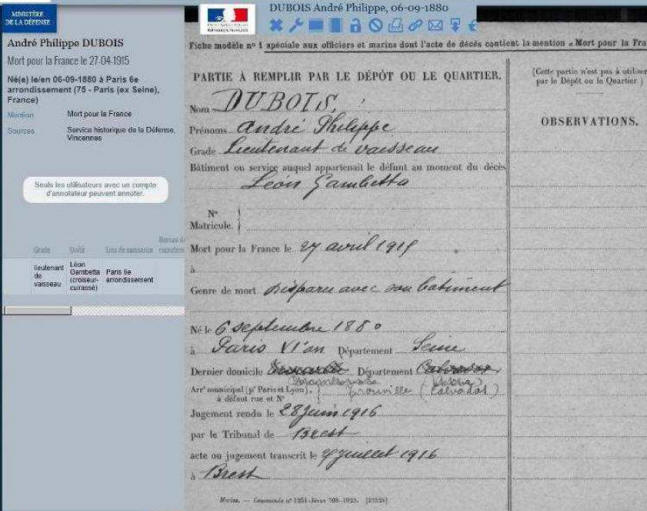 MINISTÈRE
DE LA DÉFENSE
André Philippe DUBOIS
Mort pour la France le 27-04-1915
Né(e) le/en 06-09-1880 à Paris 6e
arrondissement (75 - Paris (ex Seine),
France)
Mention Mort pour la France
Sources Service historique de la Défense,
Vincennes
Seuls les utilisateurs avec un compte
d'annotateur peuvent annoter.
Grade Unité Lieu de naissance Bureau de recrutement
lieutenant de vaisseau Léon Gambetta (croiseur-cuirassé) Paris 6e arrondissement
DUBOIS André Philippe, 06-09-1880
Fiche modèle n° 1 spéciale aux officiers et marins dont l'acte de décès contient la mention « Mort pour la Fra
PARTIE À REMPLIR PAR LE DÉPÔT OU LE QUARTIER.
Nom DUBOIS,
Prénoms André Philippe
Grade Lieutenant de vaisseau
Bâtiment ou service auquel appartenait le défunt au moment du décès
Léon Gambetta
N°
Matricule.
Mort pour la France le 27 avril 1915
à
Genre de mort Disparu avec son bâtiment
Né le 6 septembre 1880
à Paris VI'an Département Seine
Dernier domicile Département Calvados
Arr' municipal (p' Paris et Lyon),
à défaut rue et N°
(Calvados)
Jugement rendu le 28 juin 1916
par le Tribunal de Brest
acte ou jugement transcrit le juillet 1916
à Brest
(Cette partie n'est pas à utiliser
par le Dépôt ou le Quartier.)
OBSERVATIONS.